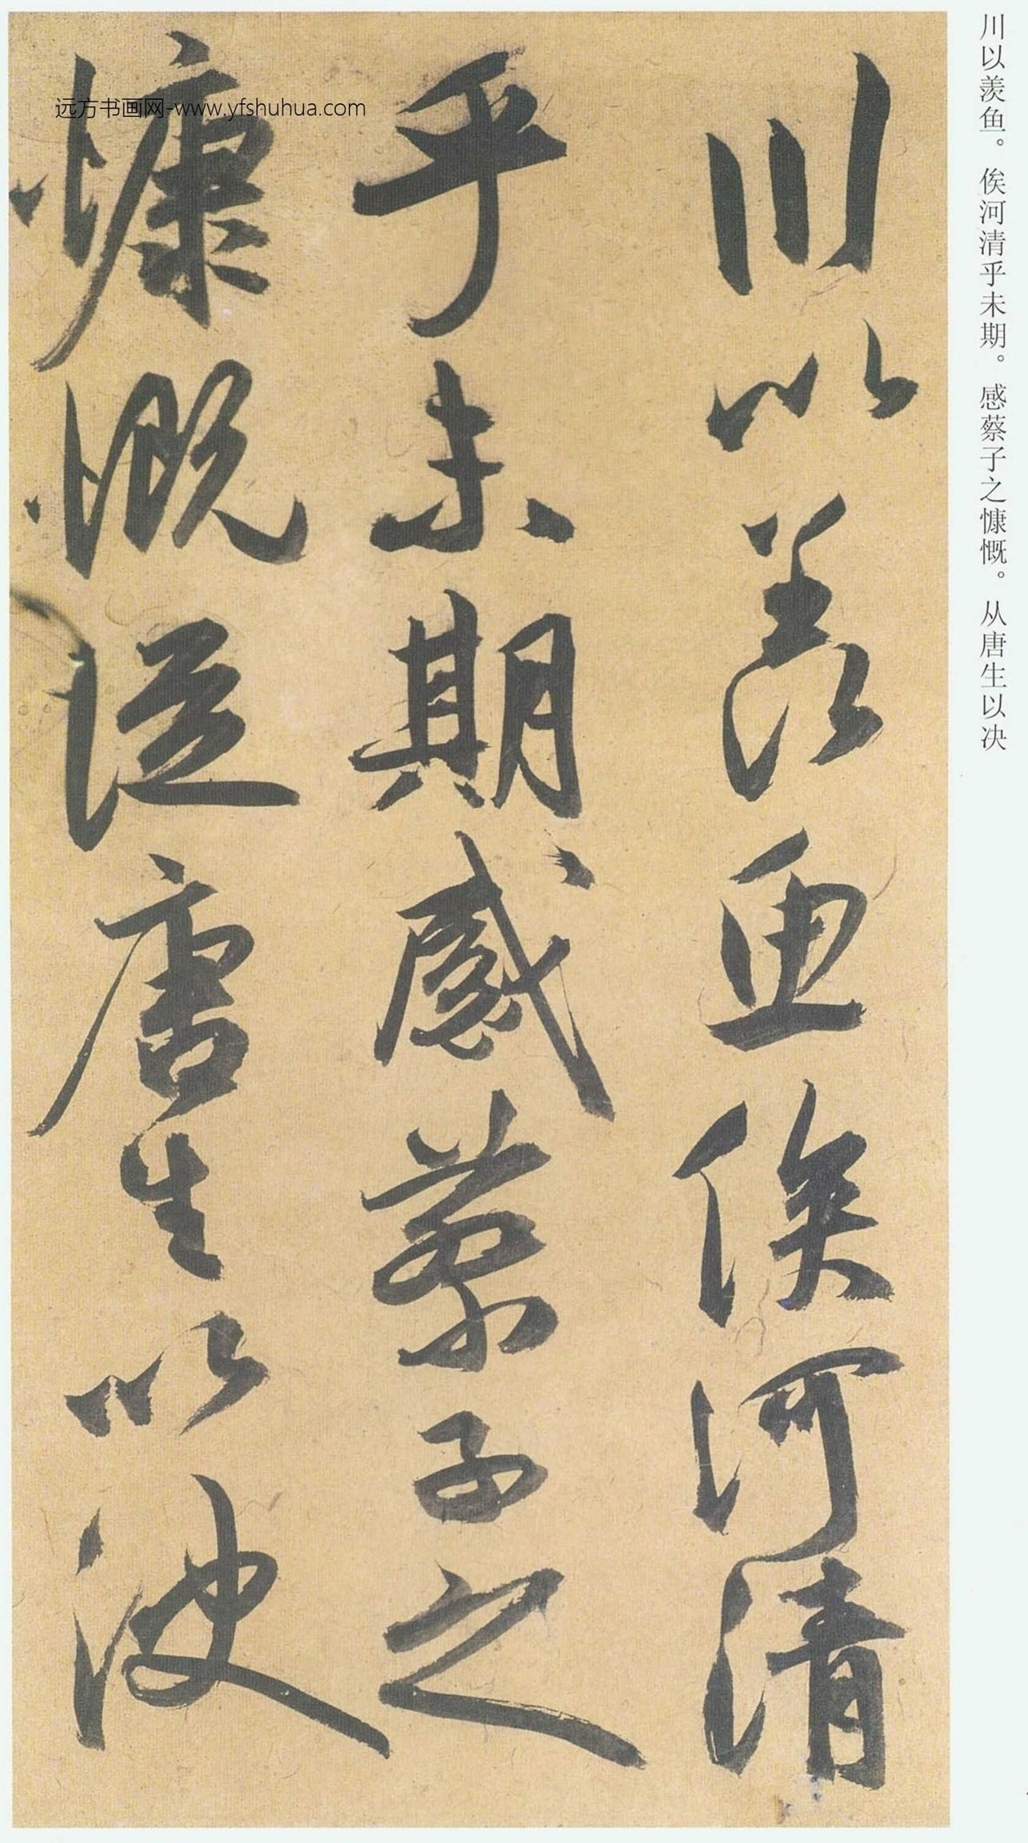 川以羡鱼。俟河清乎未期。感蔡子之慷慨。从唐生以决
川以羡鱼俟河清
乎未期感蔡子之
慷慨従唐生以決
远方书画网-www.yfshuhua.com